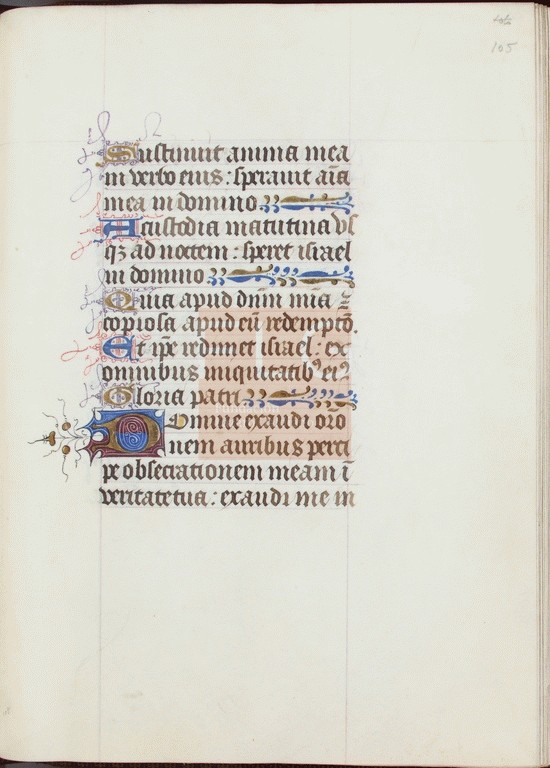 105
Sustinuit anima mea
in verbo eius : speravit aīa
mea in domino
A custodia matutina vs
qꝫ ad noctem : speret israel
in domino
Quia apud dn̄m mīa ⁊
copiosa apud eū redemptō.
Et ip̄e redimet israel : ex
omnibus iniquitatibꝰ eiꝰ
Gloria patri
Domine exaudi orō
nem auribus perci
pe obsecrationem meam ī
veritate tua : exaudi me in